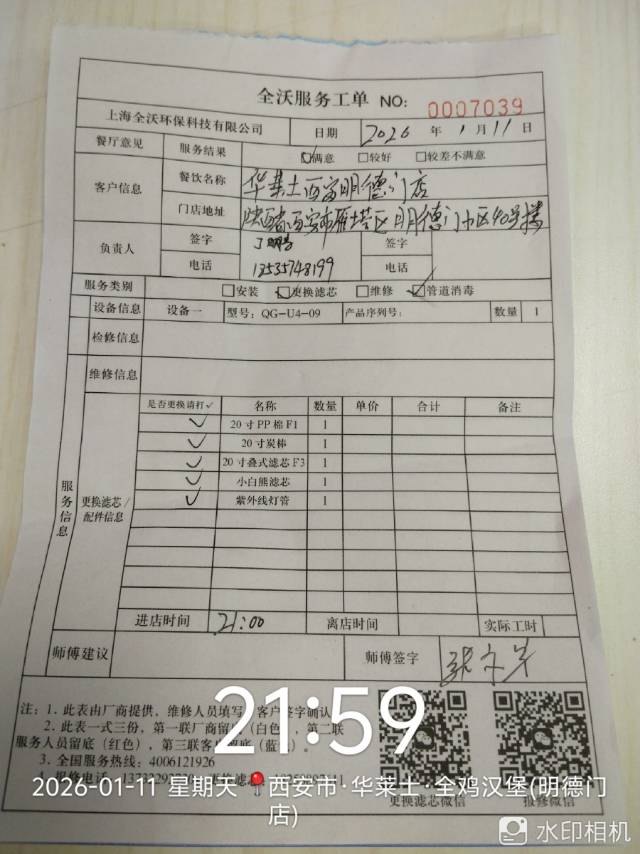 全沃服务工单 NO: 0007039
上海全沃环保科技有限公司 日期 2026 年 1 月 11 日
餐厅意见 服务结果 ☑满意 □较好 □较差不满意
客户信息 餐饮名称 华莱士西安明德门店
门店地址 陕西省西安市雁塔区明德门小区40号楼
负责人 签字 签字
电话 13535748199 电话
服务类别 □安装 ☑更换滤芯 □维修 ☑管道消毒
设备信息 设备一 型号: QG-U4-09 产品序列号: 数量 1
检修信息
维修信息
服务信息
更换滤芯/配件信息
是否更换请打√ 名称 数量 单价 合计 备注
√ 20寸PP棉F1 1
√ 20寸炭棒 1
√ 20寸叠式滤芯F3 1
√ 小白熊滤芯 1
√ 紫外线灯管 1
进店时间 21:00 离店时间 实际工时
师傅建议 师傅签字
注: 1. 此表由厂商提供, 维修人员填写, 客户签字确认
2. 此表一式三份, 第一联厂商留底(白色), 第二联
服务人员留底(红色), 第三联客户留底(蓝色)
3. 全国服务热线: 4006121926
报修电话
更换滤芯微信 报修微信
21:59
2026-01-11 星期天 西安市·华莱士·全鸡汉堡(明德门
店)
水印相机